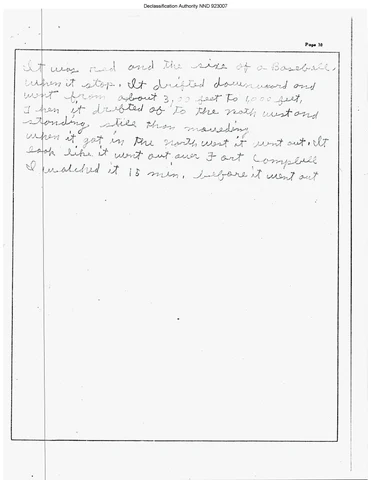 Declassification Authority NND 923007
Page
It was red and the size of a Baseball.
when it stop. It drifted downward and
went from about 3, feet to 1,000 feet,
Then it drifted of to the north west and
standing still than
when it got in the north west it went out. It
look like it went out over Fort Campbell
I watched it 15 min. before it went out